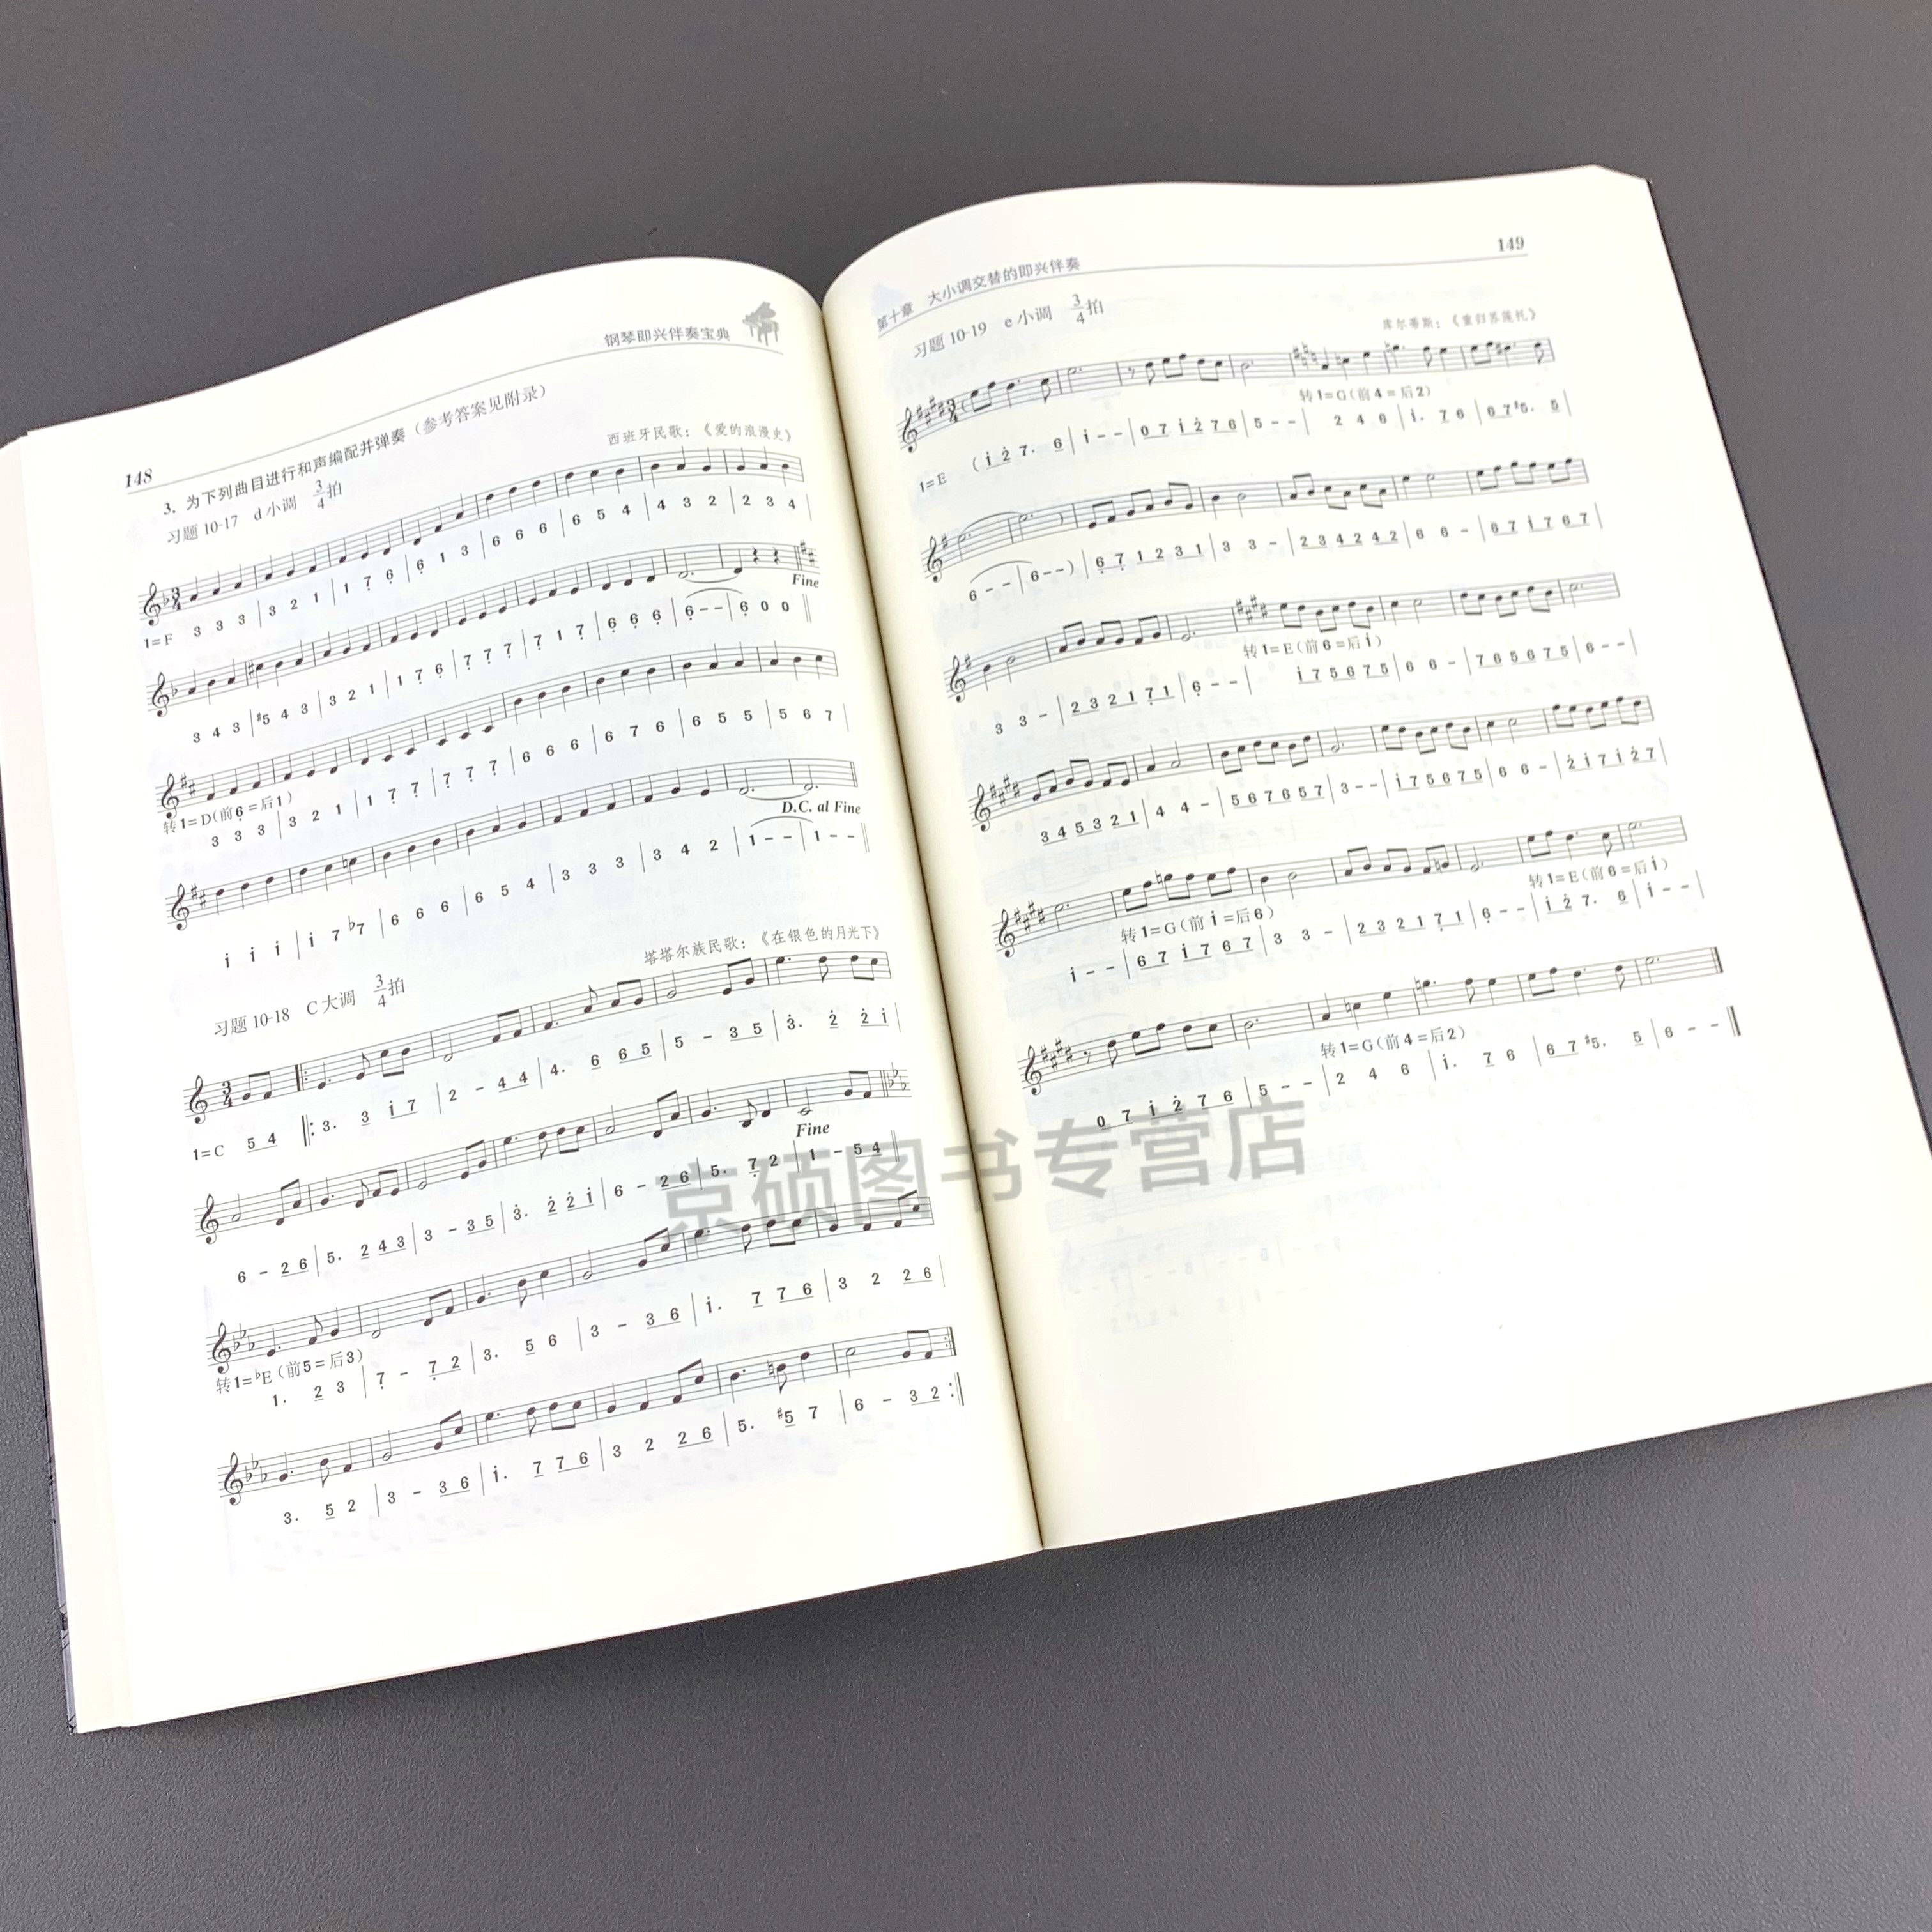 148
钢琴即兴伴奏宝典
3. 为下列曲目进行和声编配并弹奏(参考答案见附录)
习题 10-17 d 小调 3/4 拍
西班牙民歌:《爱的浪漫史》
1=F 3 3 3 | 3 2 1 | 1 7̣ 6̣ | 6̣ 1 3 | 6 6 6 | 6 5 4 | 4 3 2 | 2 3 4 |
Fine
3 4 3 | #5 4 3 | 3 2 1 | 1 7̣ 6̣ | 7̣ 7̣ 7̣ | 7̣ 1 7̣ | 6̣ 6̣ 6̣ | 6̣ - - | 6̣ 0 0 ‖
转1=D(前6̣=后1)
3 3 3 | 3 2 1 | 1 7̣ 7̣ | 7̣ 7̣ 7̣ | 6 6 6 | 6 7 6 | 6 5 5 | 5 6 7 |
D.C. al Fine
i i i | i 7 ♭7 | 6 6 6 | 6 5 4 | 3 3 3 | 3 4 2 | 1 - - | 1 - - ‖
习题 10-18 C 大调 3/4 拍
塔塔尔族民歌:《在银色的月光下》
1=C 5 4 ‖: 3. 3 i 7 | 2 - 4 4 | 4. 6 6 5 | 5 - 3 5 | 3̇. 2̇ 2̇ i |
Fine
6 - 2 6 | 5. 2 4 3 | 3 - 3 5 | 3̇. 2̇ 2̇ i | 6 - 2 6 | 5. 7̣ 2 | 1 - 5 4 ‖
转1=♭E(前5=后3)
1. 2 3 | 7̣ - 7̣ 2 | 3. 5 6 | 3 - 3 6 | i. 7 7 6 | 3 2 2 6 |
3. 5 2 | 3 - 3 6 | i. 7 7 6 | 3 2 2 6 | 5. #5 7 | 6 - 3 2 :‖
第十章 大小调交替的即兴伴奏
149
习题 10-19 e 小调 3/4 拍
库尔蒂斯:《重归苏莲托》
转1=G(前4=后2)
1=E (i 2̇ 7. 6 | i - - | 0 7 i 2̇ 7 6 | 5 - - | 2 4 6 | i. 7 6 | 6 7 #5. 5 |
6 - - | 6 - -) | 6̣ 7̣ 1 2 3 1 | 3 3 - | 2 3 4 2 4 2 | 6 6 - | 6 7 i 7 6 7 |
转1=E(前6=后i)
3 3 - | 2 3 2 1 7̣ 1 | 6̣ - - | i 7 5 6 7 5 | 6 6 - | 7 6 5 6 7 5 | 6 - - |
3 4 5 3 2 1 | 4 4 - | 5 6 7 6 5 7 | 3 - - | i 7 5 6 7 5 | 6 6 - | 2̇ i 7 i 2̇ 7 |
转1=G(前i=后6) 转1=E(前6=后i)
i - - | 6 7 i 7 6 7 | 3 3 - | 2 3 2 1 7̣ 1 | 6̣ - - | i 2̇ 7. 6 | i - - |
转1=G(前4=后2)
0 7 i 2̇ 7 6 | 5 - - | 2 4 6 | i. 7 6 | 6 7 #5. 5 | 6 - - ‖
京硕图书专营店